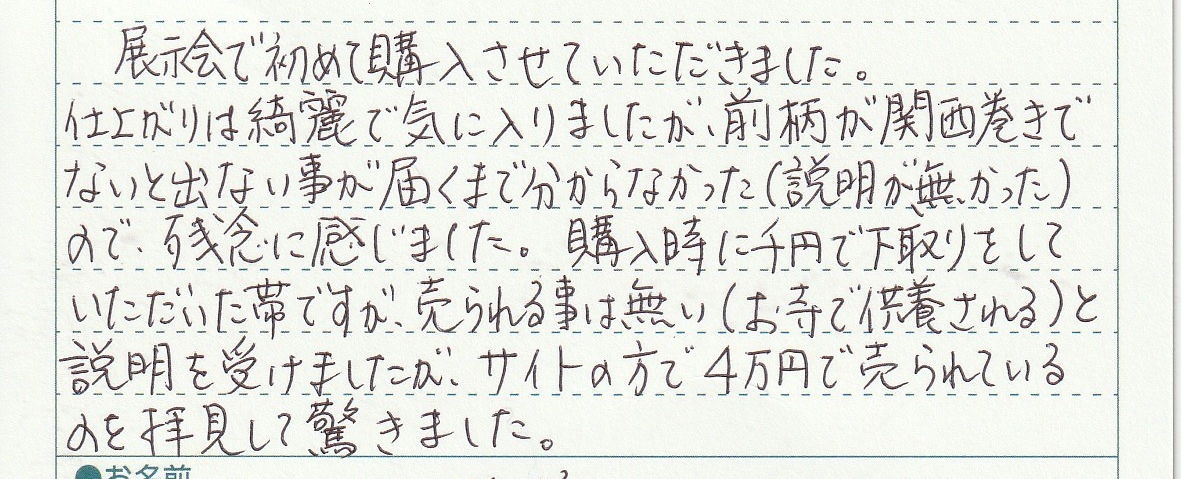 展示会で初めて購入させていただきました。
仕上がりは綺麗で気に入りましたが、前柄が関西巻きで
ないと出ない事が届くまで分からなかった(説明が無かった)
ので、残念に感じました。購入時に千円で下取りをして
いただいた帯ですが、売られる事は無い(お寺で供養される)と
説明を受けましたが、サイトの方で4万円で売られている
のを拝見して驚きました。
●お名前